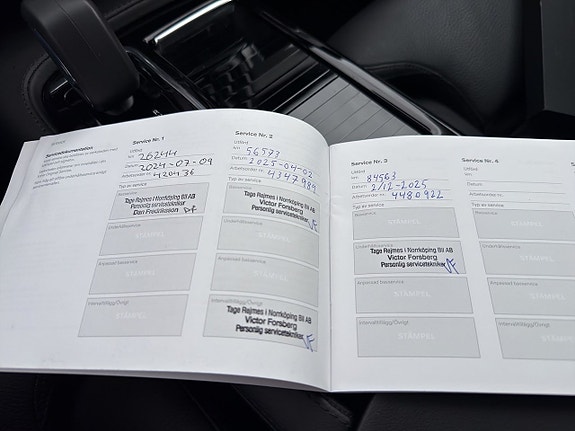 Servicedokumentation.
Service Nr. 1
Utförd
km 28244
Datum 2024-07-09
Arbetsorder nr
Typ av service
Tage Rejmes i Norrköping Bil AB
Personlig servicetekniker
Dan Fredriksson DF
Underhållsservice
STÄMPEL
Anpassad basservice
STÄMPEL
Intervalltillägg/Övrigt
STÄMPEL
Service Nr. 2
Utförd
km 56573
Datum 2025-04-02
Arbetsorder nr 4347989
Typ av service
Tage Rejmes i Norrköping Bil AB
Victor Forsberg
Personlig servicetekniker VF
Underhållsservice
STÄMPEL
Anpassad basservice
STÄMPEL
Intervalltillägg/Övrigt
Tage Rejmes i Norrköping Bil AB
Victor Forsberg
Personlig servicetekniker VF
Service Nr. 3
Utförd
km 84563
Datum 2/12-2025
Arbetsorder nr 4480922
Typ av service
Basservice
STÄMPEL
Underhållsservice
Tage Rejmes i Norrköping Bil AB
Victor Forsberg
Personlig servicetekniker VF
Anpassad basservice
STÄMPEL
Intervalltillägg/Övrigt
STÄMPEL
Service Nr. 4
Utförd
km
Datum
Arbetsorder nr
Typ av service
Basservice
STÄMPEL
Underhållsservice
STÄMPEL
Anpassad basservice
STÄMPEL
Intervalltillägg/Övrigt
STÄMPEL